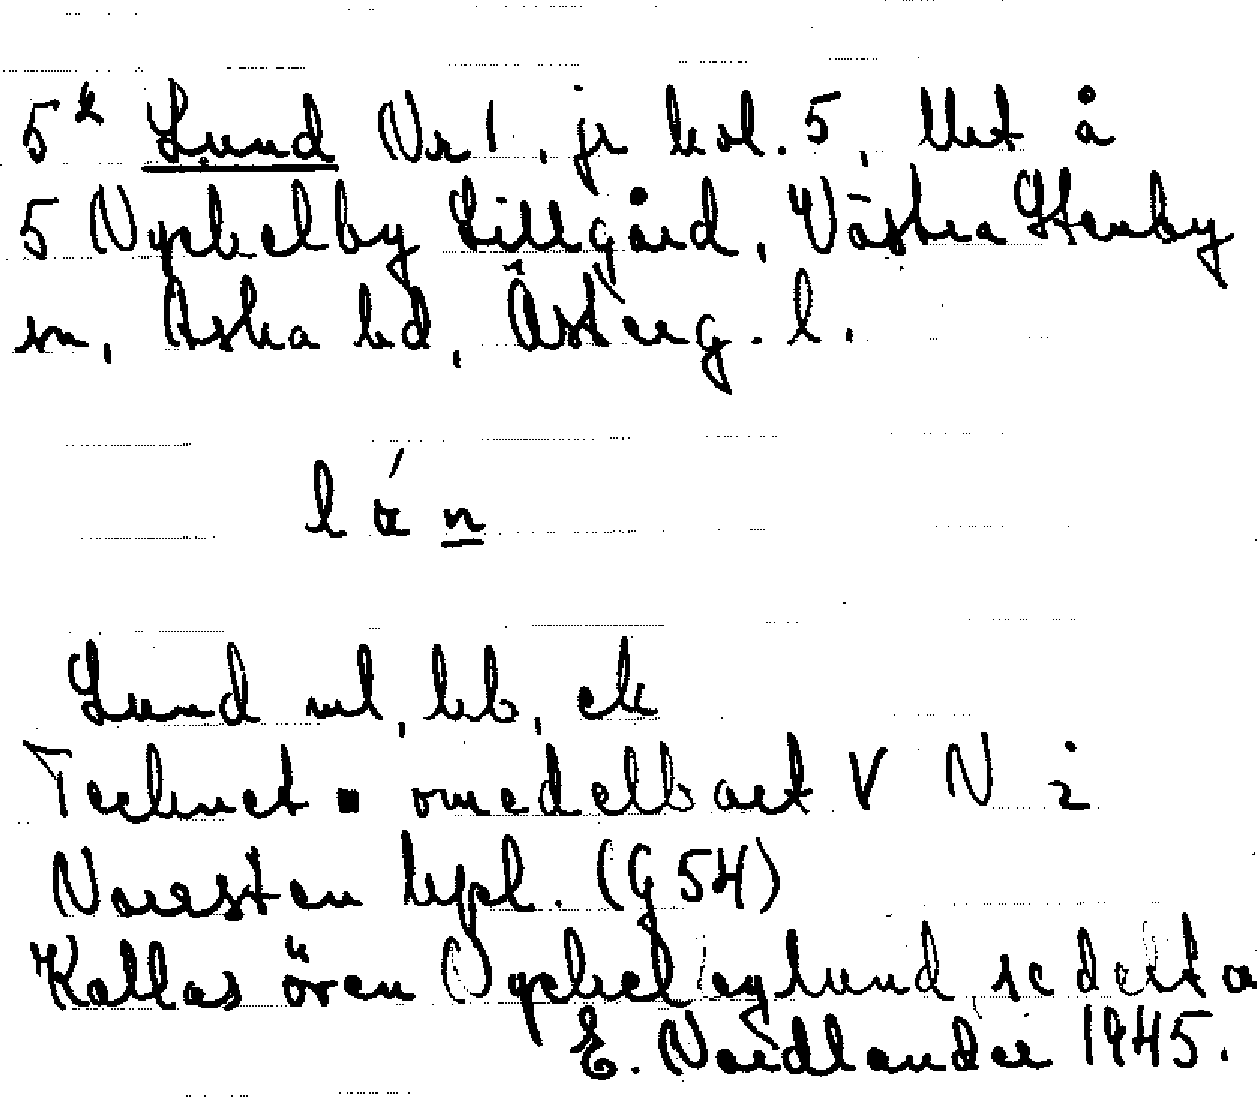 5k Lund Nr 1, jr kol. 5, Utet å
5 Nyckelby Lillgård, Västra Stenby
sn, Aska hd, Österg. l.
lún
Lund ul, bb, ek
Tecknet ▪ omedelbart V N i
Norrsten kpl. (G 54)
Kallas även Nyckelbylund, se detta
E. Nordlander 1945.